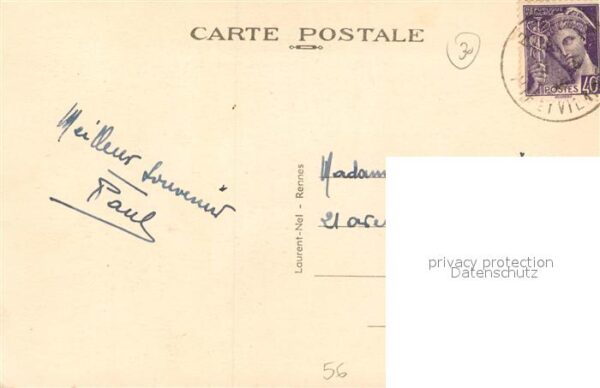 CARTE POSTALE
30
POSTES 40
ET VILAINE
Meilleur Souvenir
Paul
Laurent-Nel - Rennes
Madame
21 ave
privacy protection
Datenschutz
56